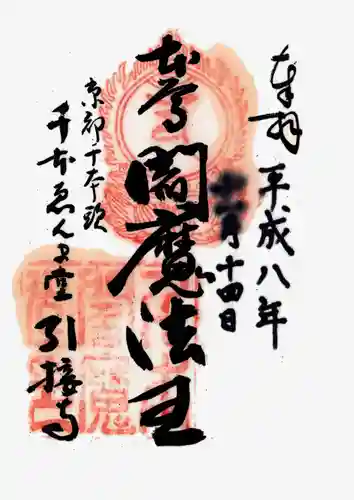 奉拝 平成八年
月十四日
本尊 閻魔法王
京都千本頭
千本ゑんま堂 引接寺